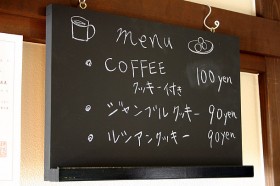 menu
COFFEE
クッキー付き 100yen
ジャンブルクッキー 90yen
ルシアンクッキー 90yen